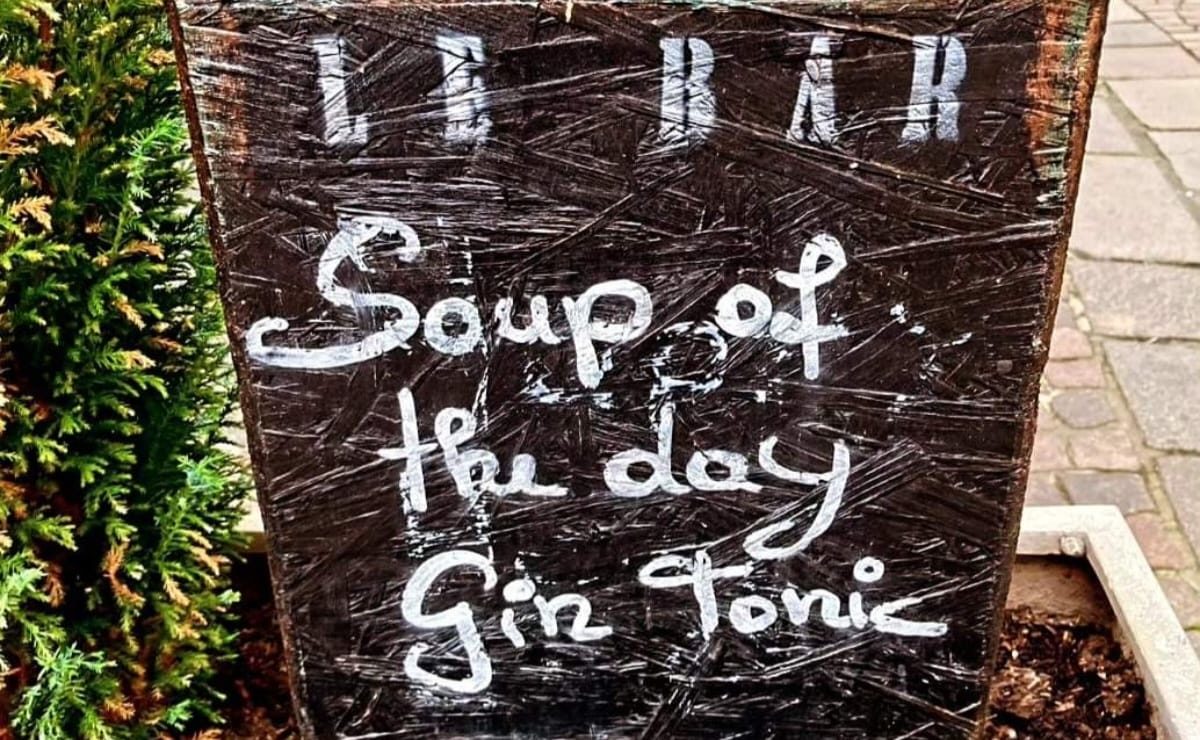 LE BAR
Soup of
the day
Gin Tonic